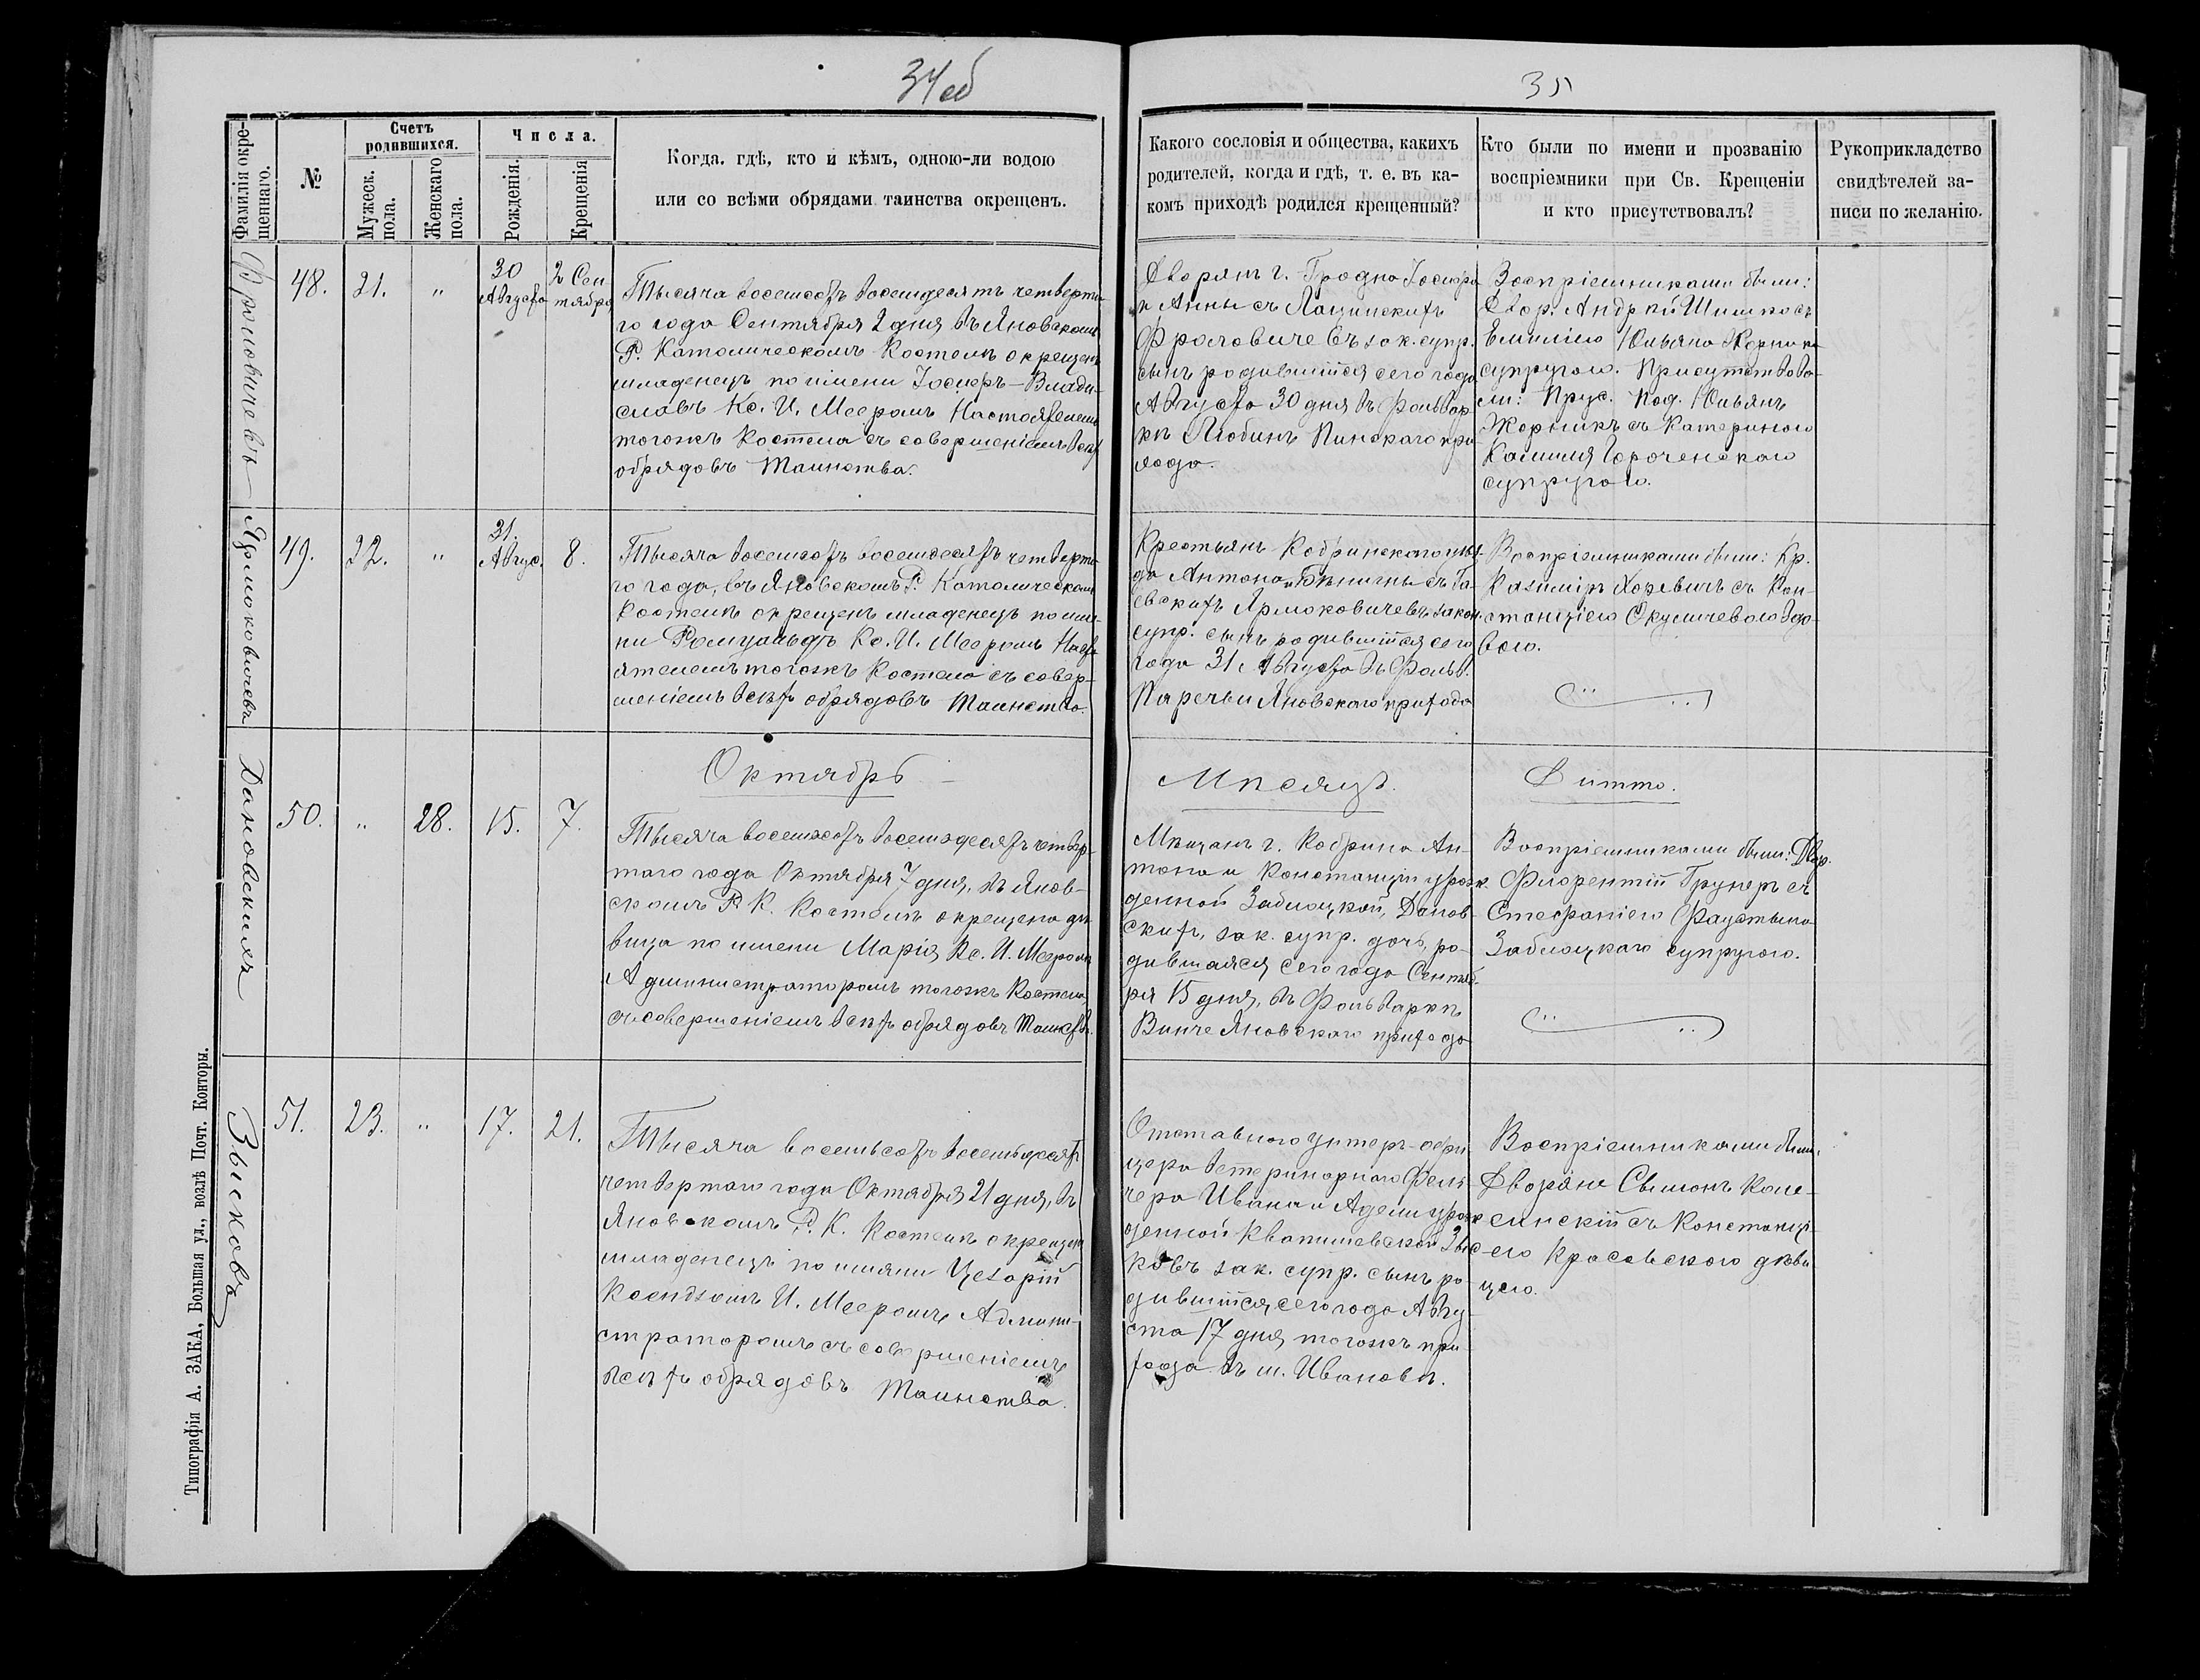 34об
Фамилія окре-
щеннаго.
№
Счетъ
родившихся.
Мужеск.
пола.
Женскаго
пола.
Числа.
Рожденія.
Крещенія
Когда. гдѣ, кто и кѣмъ, одною-ли водою
или со всѣми обрядами таинства окрещенъ.
48.
21.
"
30
Августа
2 Сен
тября
Тысяча восемсотъ восемдесятъ четверта-
го года Сентября 2 дня въ Яновскомъ
Р. Католическомъ Костелѣ окрещенъ
младенецъ по имени Іосифъ-Влади-
славъ Кс. И. Мееромъ Настоятелемъ
тогожъ Костела съ совершеніемъ всѣхъ
обрядовъ Таинства.
Ярмоковичевъ
49.
22.
"
31.
Авгус.
8.
Тысяча восемсотъ восемдесятъ четверта-
го года, въ Яновскомъ Р. Католическомъ
Костелѣ окрещенъ младенецъ по име-
ни Ромуальдъ Кс. И. Мееромъ Насто-
ятелемъ тогожъ Костела съ совер-
шеніемъ всѣхъ обрядовъ Таинства.
Дановскихъ
Октябрь
50.
"
28.
15.
7.
Тысяча восемсотъ восемдесятъ четвер-
таго года Октября 7 дня, въ Янов-
скомъ Р. К. Костелѣ окрещена дѣ-
вица по имени Марія Кс. И. Мееромъ
Администраторомъ тогожъ Костела
съ совершеніемъ всѣхъ обрядовъ Таинства.
Зысковъ
51.
23.
"
17.
21.
Тысяча восемьсотъ восемьдесятъ
четвертаго года Октября 21 дня, въ
Яновскомъ Р. К. Костелѣ окрещенъ
младенецъ по имяни Цезарій
Ксендзомъ И. Мееромъ Админи-
страторомъ съ совершеніемъ
всѣхъ обрядовъ Таинства.
Типографія А. ЗАКА, Большая ул., возлѣ Почт. Конторы.
35
Какого сословія и общества, какихъ
родителей, когда и гдѣ, т. е. въ ка-
комъ приходѣ родился крещенный?
Кто были по имени и прозванію
воспріемники при Св. Крещеніи
и кто присутствовалъ?
Рукоприкладство
свидѣтелей за-
писи по желанію.
Дворянъ г. Гродна Іосифа
и Анны съ Лащинскихъ
Фроловичевъ зак. супр.
сынъ родившійся сего года
Августа 30 дня въ Фольвар-
кѣ Любинъ Пинскаго при-
хода.
Воспріемниками были:
Двор. Андрей Шишко съ
Емиліею Юльяна Жорника
супругою. Присутствова-
ли: Прус. Под. Юльянъ
Жорникъ съ Катериною
супругою.
Крестьянъ Кобринскаго уѣз-
да Антона и Бѣнигны съ Га-
евскихъ Ярмоковичевъ закон.
супр. сынъ родившійся сего
года 31 Августа въ Фольв.
Парѣчьи Яновскаго прихода
Воспріемниками были: Кр.
Казиміръ Хоревичъ съ Кон-
станціею Окуличевою вдо-
вою.
Мѣсяцъ.
Дитто.
Мѣщанъ г. Кобрина Ан-
тона и Констанціи урож-
денной Заблоцкой, Данов-
скихъ, зак. супр. дочь, ро-
дившаяся сего года Сентяб-
ря 15 дня, въ Фольваркѣ
Винче Яновскаго прихода
Воспріемниками были: Двор.
Флорентій Грунеръ съ
Стефаніею Фаустына
Заблоцкаго супругою.
Отставного унтеръ-офи-
цера ветеринарнаго Фель-
чера Ивана и Адели урож-
денной Квапишевской Зыс-
ковъ зак. супр. сынъ ро-
дившійся сего года Авгу-
ста 17 дня тогожъ при-
хода въ м. Ивановѣ.
Воспріемниками были
Дворяне Сымонъ
съ Констанці-
ею Красовскою дѣви-
цею.